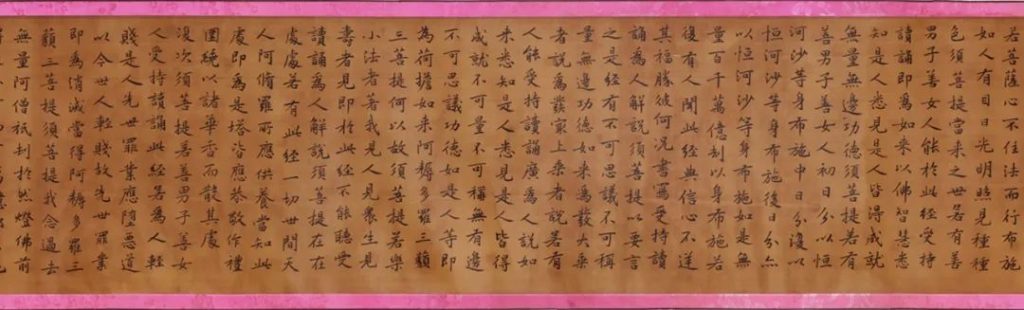 若菩薩心不住法而行布施
如人有目日光明照見種種
色須菩提當来之世若有善
男子善女人能於此經受持
讀誦即為如来以佛智慧悉
知是人悉見是人皆得成就
無量無邊功德須菩提若有
善男子善女人初日分以恒
河沙等身布施中日分復以
恒河沙等身布施後日分亦
以恒河沙等身布施如是無
量百千萬億劫以身布施若
復有人聞此經典信心不逆
其福勝彼何況書寫受持讀
誦為人解說須菩提以要言
之是經有不可思議不可稱
量無邊功德如来為發大乘
者說為發最上乘者說若有
人能受持讀誦廣為人說如
来悉知是人悉見是人皆得
成就不可量不可稱無有邊
不可思議功德如是人等即
為荷擔如来阿耨多羅三藐
三菩提何以故須菩提若樂
小法者著我見人見眾生見
壽者見即於此經不能聽受
讀誦為人解說須菩提在在
處處若有此經一切世間天
人阿脩羅所應供養當知此
處即為是塔皆應恭敬作禮
圍繞以諸華香而散其處
復次須菩提善男子善女
人受持讀誦此經若為人輕
賤是人先世罪業應墮惡道
以今世人輕賤故先世罪業
即為消滅當得阿耨多羅三
藐三菩提須菩提我念過去
無量阿僧祇劫於然燈佛前